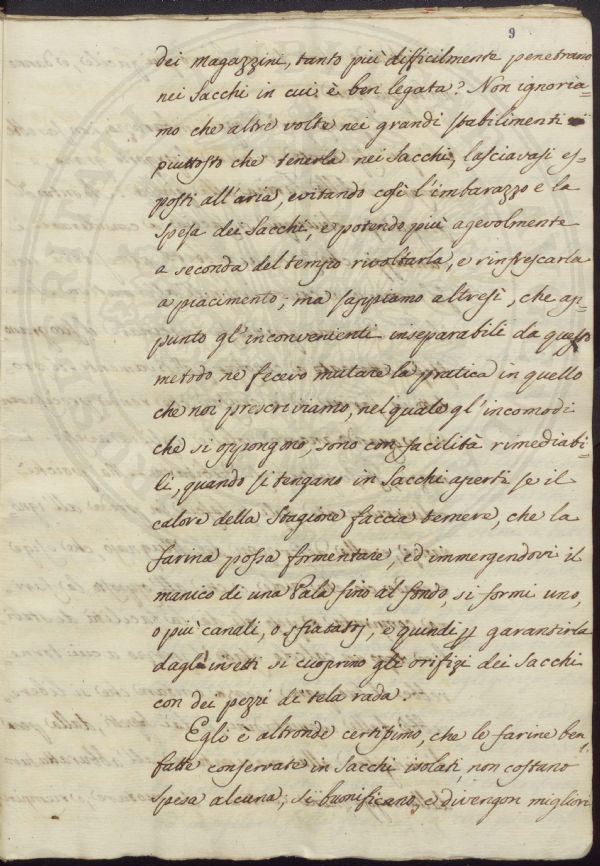 9
dei magazzini, tanto più difficilmente penetrano
nei Sacchi in cui è ben legata? Non ignoria-
mo che altre volte nei grandi stabilimenti
piuttosto che tenerla nei Sacchi, lasciavasi es-
posti all'aria, evitando così l'imbarazzo e la
spesa dei Sacchi, e potendo più agevolmente
a seconda del tempo rivoltarla, e rinfrescarla
a piacimento; ma sappiamo altresì, che ap-
punto gl'inconvenienti inseparabili da questo
metodo ne fecero mutare la pratica in quello
che noi prescriviamo, nel quale gl'incomodi
che si oppongono, sono con facilità rimediabi-
li, quando si tengano in Sacchi aperti se il
calore della Stagione faccia temere, che la
farina possa formentare, ed immergendovi il
manico di una Pala fino al fondo, si formi uno,
o più canali, o sfiatatoj, e quindi p garantirla
dagl'insetti si cuoprino gli orifizi dei Sacchi
con dei pezzi di tela rada.
Egli è altronde certissimo, che le farine ben
fatte conservate in Sacchi isolati, non costano
spesa alcuna, si buonificano, e divengon migliori